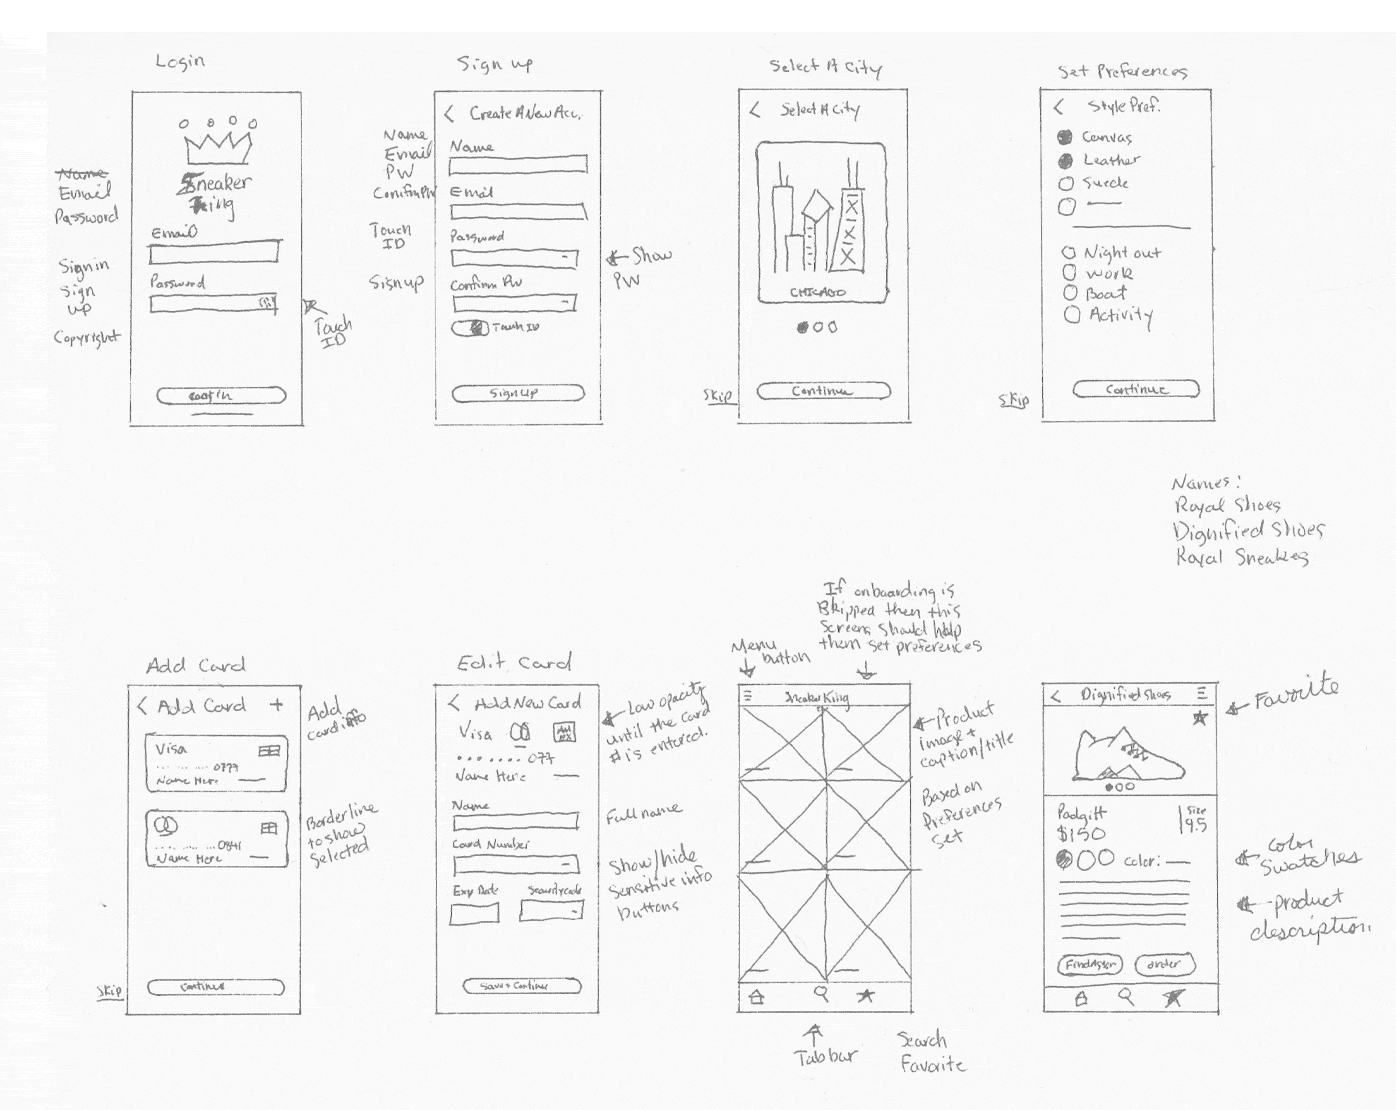 Login
Name
Email
Password
Signin
Sign
up
Copyright
Sneaker
King
Email
Password
Touch
ID
Sign up
Name
Email
PW
Touch
ID
Signup
Create A New Acc.
Name
Email
Password
Confirm PW
Touch ID
Sign Up
Show
PW
Select A City
Select A City
CHICAGO
Continue
Skip
Set Preferences
Style Pref.
Canvas
Leather
Suede
Night out
Work
Boat
Activity
Continue
Skip
Names:
Royal Shoes
Dignified Shoes
Add Card
Add Card +
Visa
0779
Name Here
Name Here
Continue
Skip
Add
card info
Borderline
to show
Selected
Edit Card
Add New Card
Visa
077
Name Here
Name
Card Number
Exp Date
Security code
Save + Continue
Low opacity
until the card
# is entered.
Full name
Show/hide
Sensitive info
buttons
Menu
button
If onboarding is
Skipped then this
Screens should help
them set preferences
Sneaker King
Product
image +
caption/title
Based on
Preferences
Set
Tab bar
Search
Favorite
Dignified Shoes
$150
Size
9.5
Color:
Order
Favorite
Color
Swatches
product
description